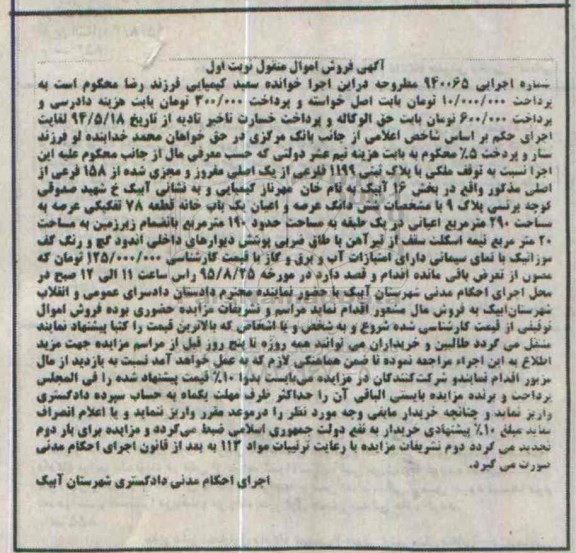 آگهی فروش اموال منقول نوبت اول
شماره اجرایی ۹۴۰۰۶۵ مطروحه دراین اجرا خوانده سعید کیمیایی فرزند رضا محکوم است به
پرداخت ۱۰/۰۰۰/۰۰۰ تومان بابت اصل خواسته و پرداخت ۳۰۰/۰۰۰ تومان بابت هزینه دادرسی و
پرداخت ۶۰۰/۰۰۰ تومان بابت حق الوکاله و پرداخت خسارت تاخیر تادیه از تاریخ ۹۴/۵/۱۸ لغایت
اجرای حکم بر اساس شاخص اعلامی از جانب بانک مرکزی در حق خواهان محمد خدابنده لو فرزند
ستار و پردخت ۵٪ محکوم به بابت هزینه نیم عشر دولتی که حسب معرفی مال از جانب محکوم علیه این
اجرا نسبت به توقف ملکی با پلاک ثبتی ۱۱۹۹ فلرعی از یک اصلی مفروز و مجزی شده از ۱۵۸ فرعی از
اصلی مذکور واقع در بخش ۱۶ آبیک به نام خان مهرناز کیمیایی و به نشانی آبیک خ شهید صدوقی
کوچه پرنسی پلاک ۹ با مشخصات شش دانگ عرصه و اعیان یک باب خانه قطعه ۷۸ تفکیکی عرصه به
مساحت ۲۹۰ مترمربع اعیانی در یک طبقه به مساحت حدود ۱۹۰ مترمربع بانضمام زیرزمین به مساحت
۲۰ متر مربع نیمه اسکلت سقف از تیرآهن با طاق ضربی پوشش دیوارهای داخلی اندود گچ و رنگ کف
موزائیک با نمای سیمانی دارای امتیازات آب و برق و گاز با قیمت کارشناسی ۱۲۵/۰۰۰/۰۰۰ تومان که
مصون از تعرض باقی مانده اقدام و قصد دارد در مورخه ۹۵/۸/۲۵ راس ساعت ۱۱ الی ۱۲ صبح در
محل اجرای احکام مدنی شهرستان آبیک با حضور نماینده محترم دادستان دادسرای عمومی و انقلاب
شهرستان آبیک به فروش مال مشعور اقدام نماید مراسم و تشریفات مزایده حضوری بوده فروش اموال
توقیفی از قیمت کارشناسی شده شروع و به شخص و یا اشخاص که بالاترین قیمت را کتبا پیشنهاد نمایند
منتقل می گردد طالبین و خریداران می توانند همه روزه تا پنج روز قبل از مراسم مزایده جهت مزید
اطلاع به این اجراء مراجعه نموده تا ضمن هماهنگی لازم که به عمل خواهد آمد نسبت به بازدید از مال
مزبور اقدام نمایندو شرکت کنندگان در مزایده می‌بایست بدوا ۱۰٪ قیمت پیشنهاد شده را فی المجلس
پرداخت و برنده مزایده بایستی الباقی آن را حداکثر ظرف مهلت یکماه به حساب سپرده دادگستری
واریز نماید و چنانچه خریدار مابقی وجه مورد نظر را درموعد مقرر واریز ننماید و یا اعلام انصراف
نماید مبلغ ۱۰٪ پیشنهادی خریدار به نفع دولت جمهوری اسلامی ضبط می‌گردد و مزایده برای بار دوم
تجدید می گردد دوم تشریفات مزایده با رعایت ترتیبات مواد ۱۱۳ به بعد از قانون اجرای احکام مدنی
صورت می گیرد.
اجرای احکام مدنی دادگستری شهرستان آبیک